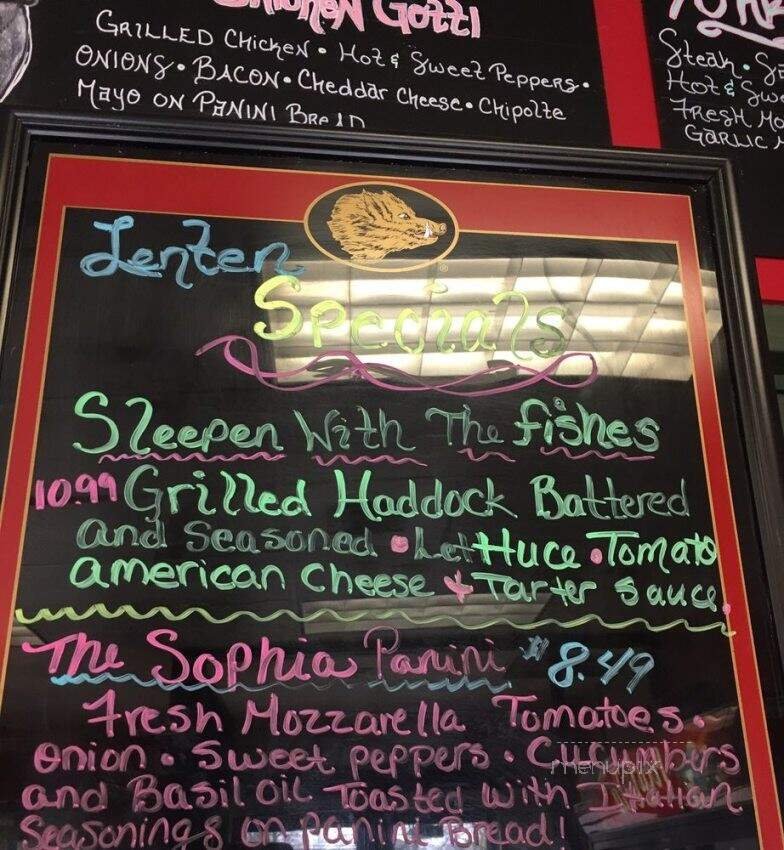 Chicken Gotti
Grilled Chicken • Hot & Sweet Peppers •
Onions • Bacon • Cheddar Cheese • Chipolte
Mayo on Panini Bread
Steak •
Hot &
Fresh
Garlic
Lenten
Specials
Sleepen With The fishes
10.99 Grilled Haddock Battered
and Seasoned • Lettuce • Tomato
american Cheese & Tarter Sauce
The Sophia Panini $8.49
Fresh Mozzarella Tomatoes •
onion • Sweet peppers • Cucumbers
and Basil oil Toasted with Italian
Seasonings on panini Bread!
menupix